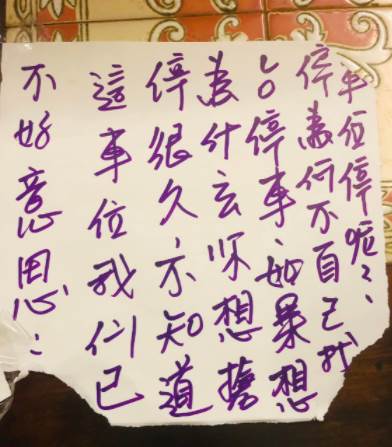 不好意思：
這車位我们已
停很久、不知道
為什么你想搶
占停車、如果想
停為何不自己找
車位停呢??